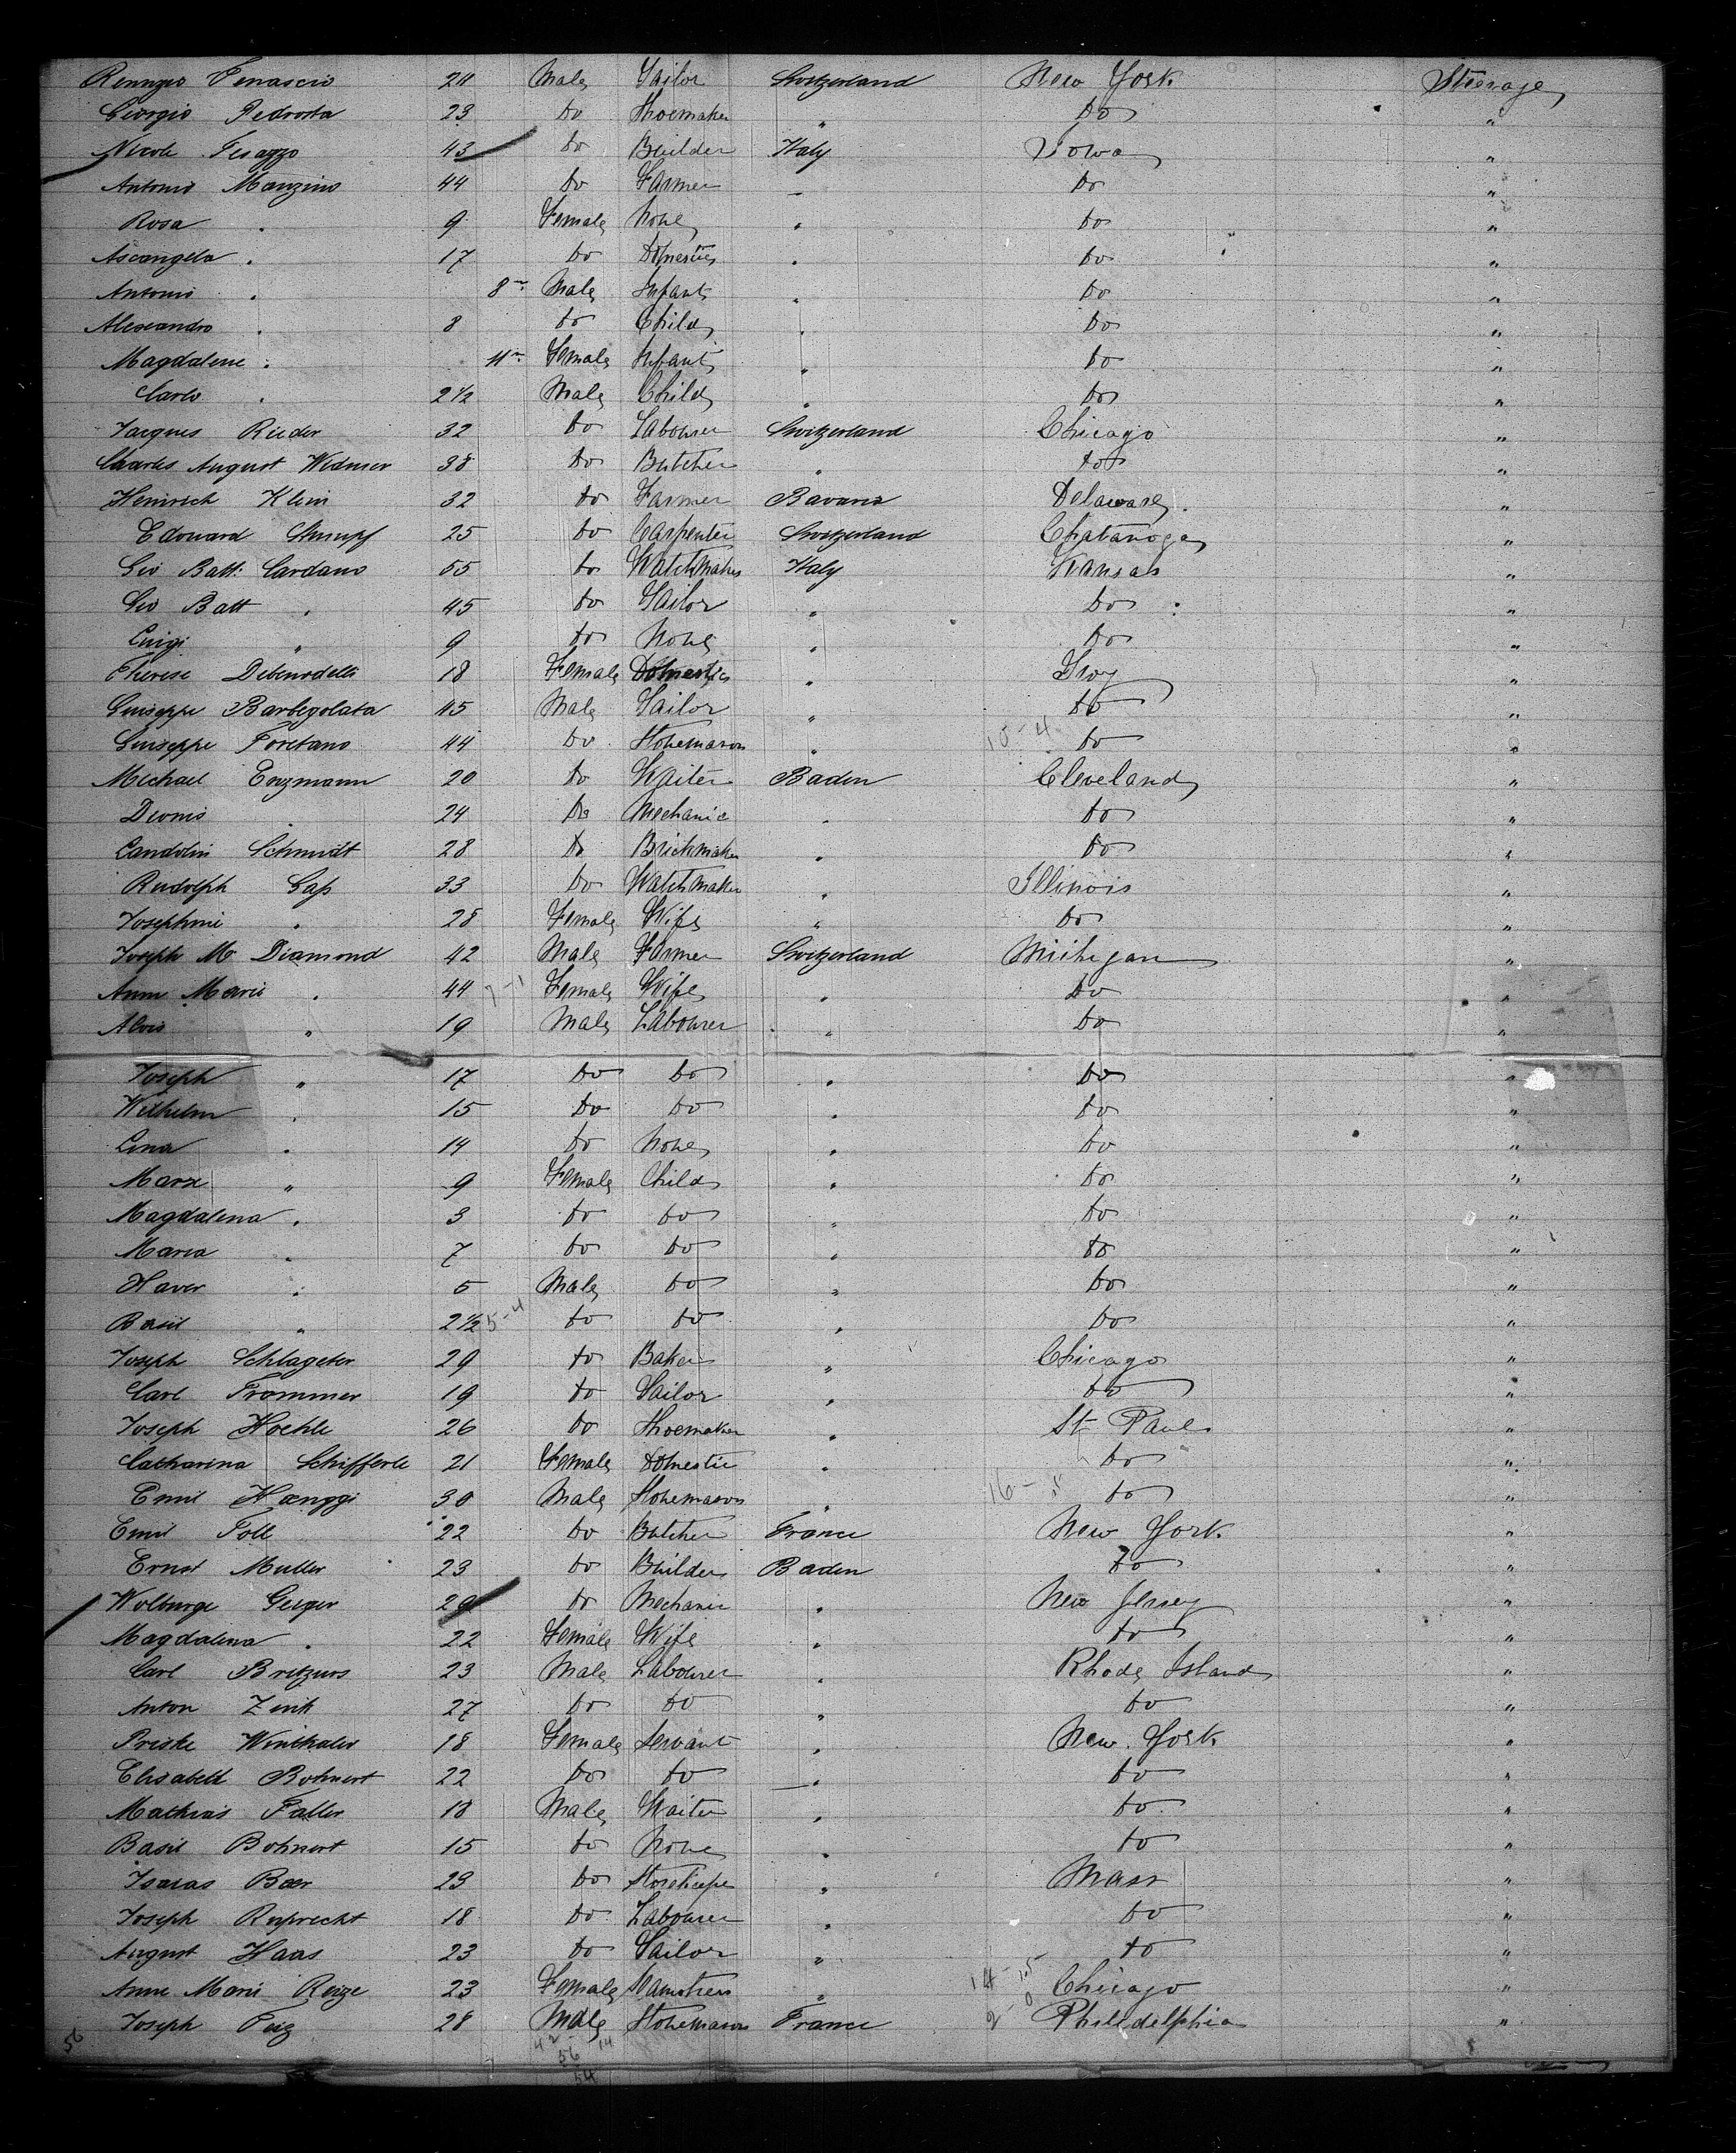 Remigio Fenascio 24 Male Tailor Switzerland New York Steerage
Giorgio Pedrotta 23 Do Shoemaker " Do "
Nicole Fesazzo 43 Do Builder Italy Iowa "
Antonio Manzino 44 Do Farmer " Do "
Rosa " 9 Female None " Do "
Ascangela " 17 Do Domestic " Do "
Antonio " 8m Male Infant " Do "
Alessandro " 8 Do Child " Do "
Magdalene " 11m Female Infant " Do "
Carlo " 2 1/2 Male Child " Do "
Jacques Rieder 32 Do Labourer Switzerland Chicago "
Charles August Widmer 38 Do Butcher " Do "
Heinrich Klein 32 Do Farmer Bavaria Delaware "
Edouard Stumpf 25 Do Carpenter Switzerland Chatanoga "
Gio Batt: Cardano 55 Do Watchmaker Italy Kansas "
Gio Batt " 45 Do Tailor " Do "
Luigi " 9 Do None " Do "
Therese Debenedetti 18 Female Domestic " Troy "
Guiseppe Barbegolata 45 Male Tailor " Do "
Guiseppe Foretano 44 Do Stonemason " Do "
Michael Enzmann 20 Do Waiter Baden Cleveland "
Dionis " 24 Do Mechanic " Do "
Candolin Schmidt 28 Do Brickmaker " Do "
Rudolph Gass 33 Do Watchmaker " Illinois "
Josephine " 28 Female Wife " Do "
Joseph M Diamond 42 Male Farmer Switzerland Michigan "
Anna Maria " 44 Female Wife " Do "
Alois " 19 Male Labourer " Do "
Joseph " 17 Do Do " Do "
Wilhelm " 15 Do Do " Do "
Lina " 14 Do None " Do "
Marie " 9 Female Child " Do "
Magdalena " 3 Do Do " Do "
Maria " 7 Do Do " Do "
Xaver " 5 Male Do " Do "
Basil " 2 1/2 Do Do " Do "
Joseph Schlageter 29 Do Baker " Chicago "
Carl Frommer 19 Do Tailor " Do "
Joseph Hoehle 26 Do Shoemaker " St Paul "
Catharina Schifferle 21 Female Domestic " Do "
Emil Haenggi 30 Male Stonemason " Do "
Emil Toll 22 Do Butcher France New York "
Ernst Muller 23 Do Builder Baden Do "
Wolburge Geiger 29 Do Mechanic " New Jersey "
Magdalena " 22 Female Wife " Do "
Carl Britzius 23 Male Labourer " Rhode Island "
Anton Zink 27 Do Do " Do "
Priske Winthaler 18 Female Servant " New York "
Elisabeth Bohnert 22 Do Do " Do "
Mathias Faller 18 Male Waiter " Do "
Basil Bohnert 15 Do None " Do "
Isaias Baer 23 Do Storekeeper " Mass "
Joseph Ruprecht 18 Do Labourer " Do "
August Haas 23 Do Tailor " Do "
Anna Maria Reize 23 Female Seamstress " Chicago "
Joseph Feiz 28 Male Stonemason France Philadelphia "
56